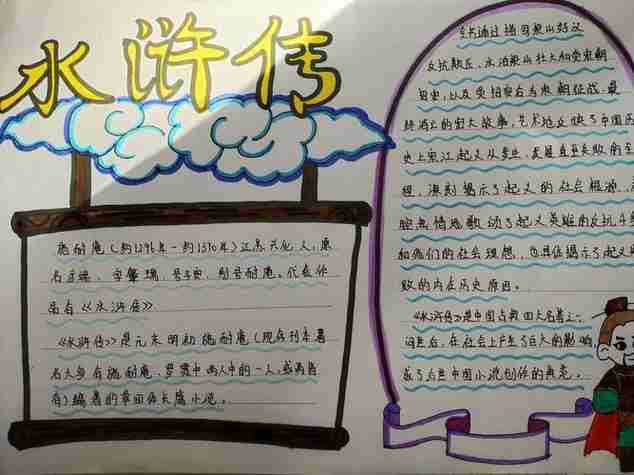 水浒传
施耐庵(约1296年-约1370年)江苏兴化人,原
名彦端、字肇瑞,号子安,别号耐庵。代表作
品有《水浒传》
《水浒传》是元末明初施耐庵(现存刊本署
名大多有施耐庵、罗贯中两人中的一人,或两者
有)编著的章回体长篇小说。
全书通过描写梁山好汉
反抗欺压、水泊梁山壮大和受宋朝
招安,以及受招安后为宋朝征战,最
终消亡的宏大故事,艺术地反映了中国历
史上宋江起义从发生、发展直至失败的全
程,深刻揭示了起义的社会根源,
腔热情地歌颂了起义英雄的反抗斗
和他们的社会理想,也具体揭示了起义
败的内在历史原因。
《水浒传》是中国古典四大名著之一,
问世后,在社会上产生了巨大的影响,
成了后世中国小说创作的典范。